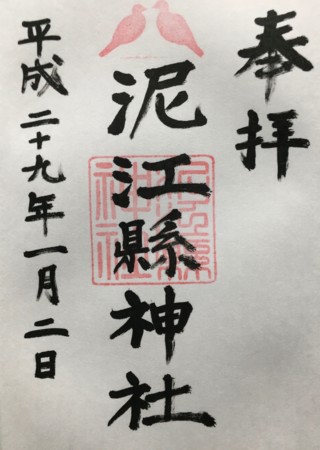 奉拝
泥江縣神社
平成二十九年一月二日